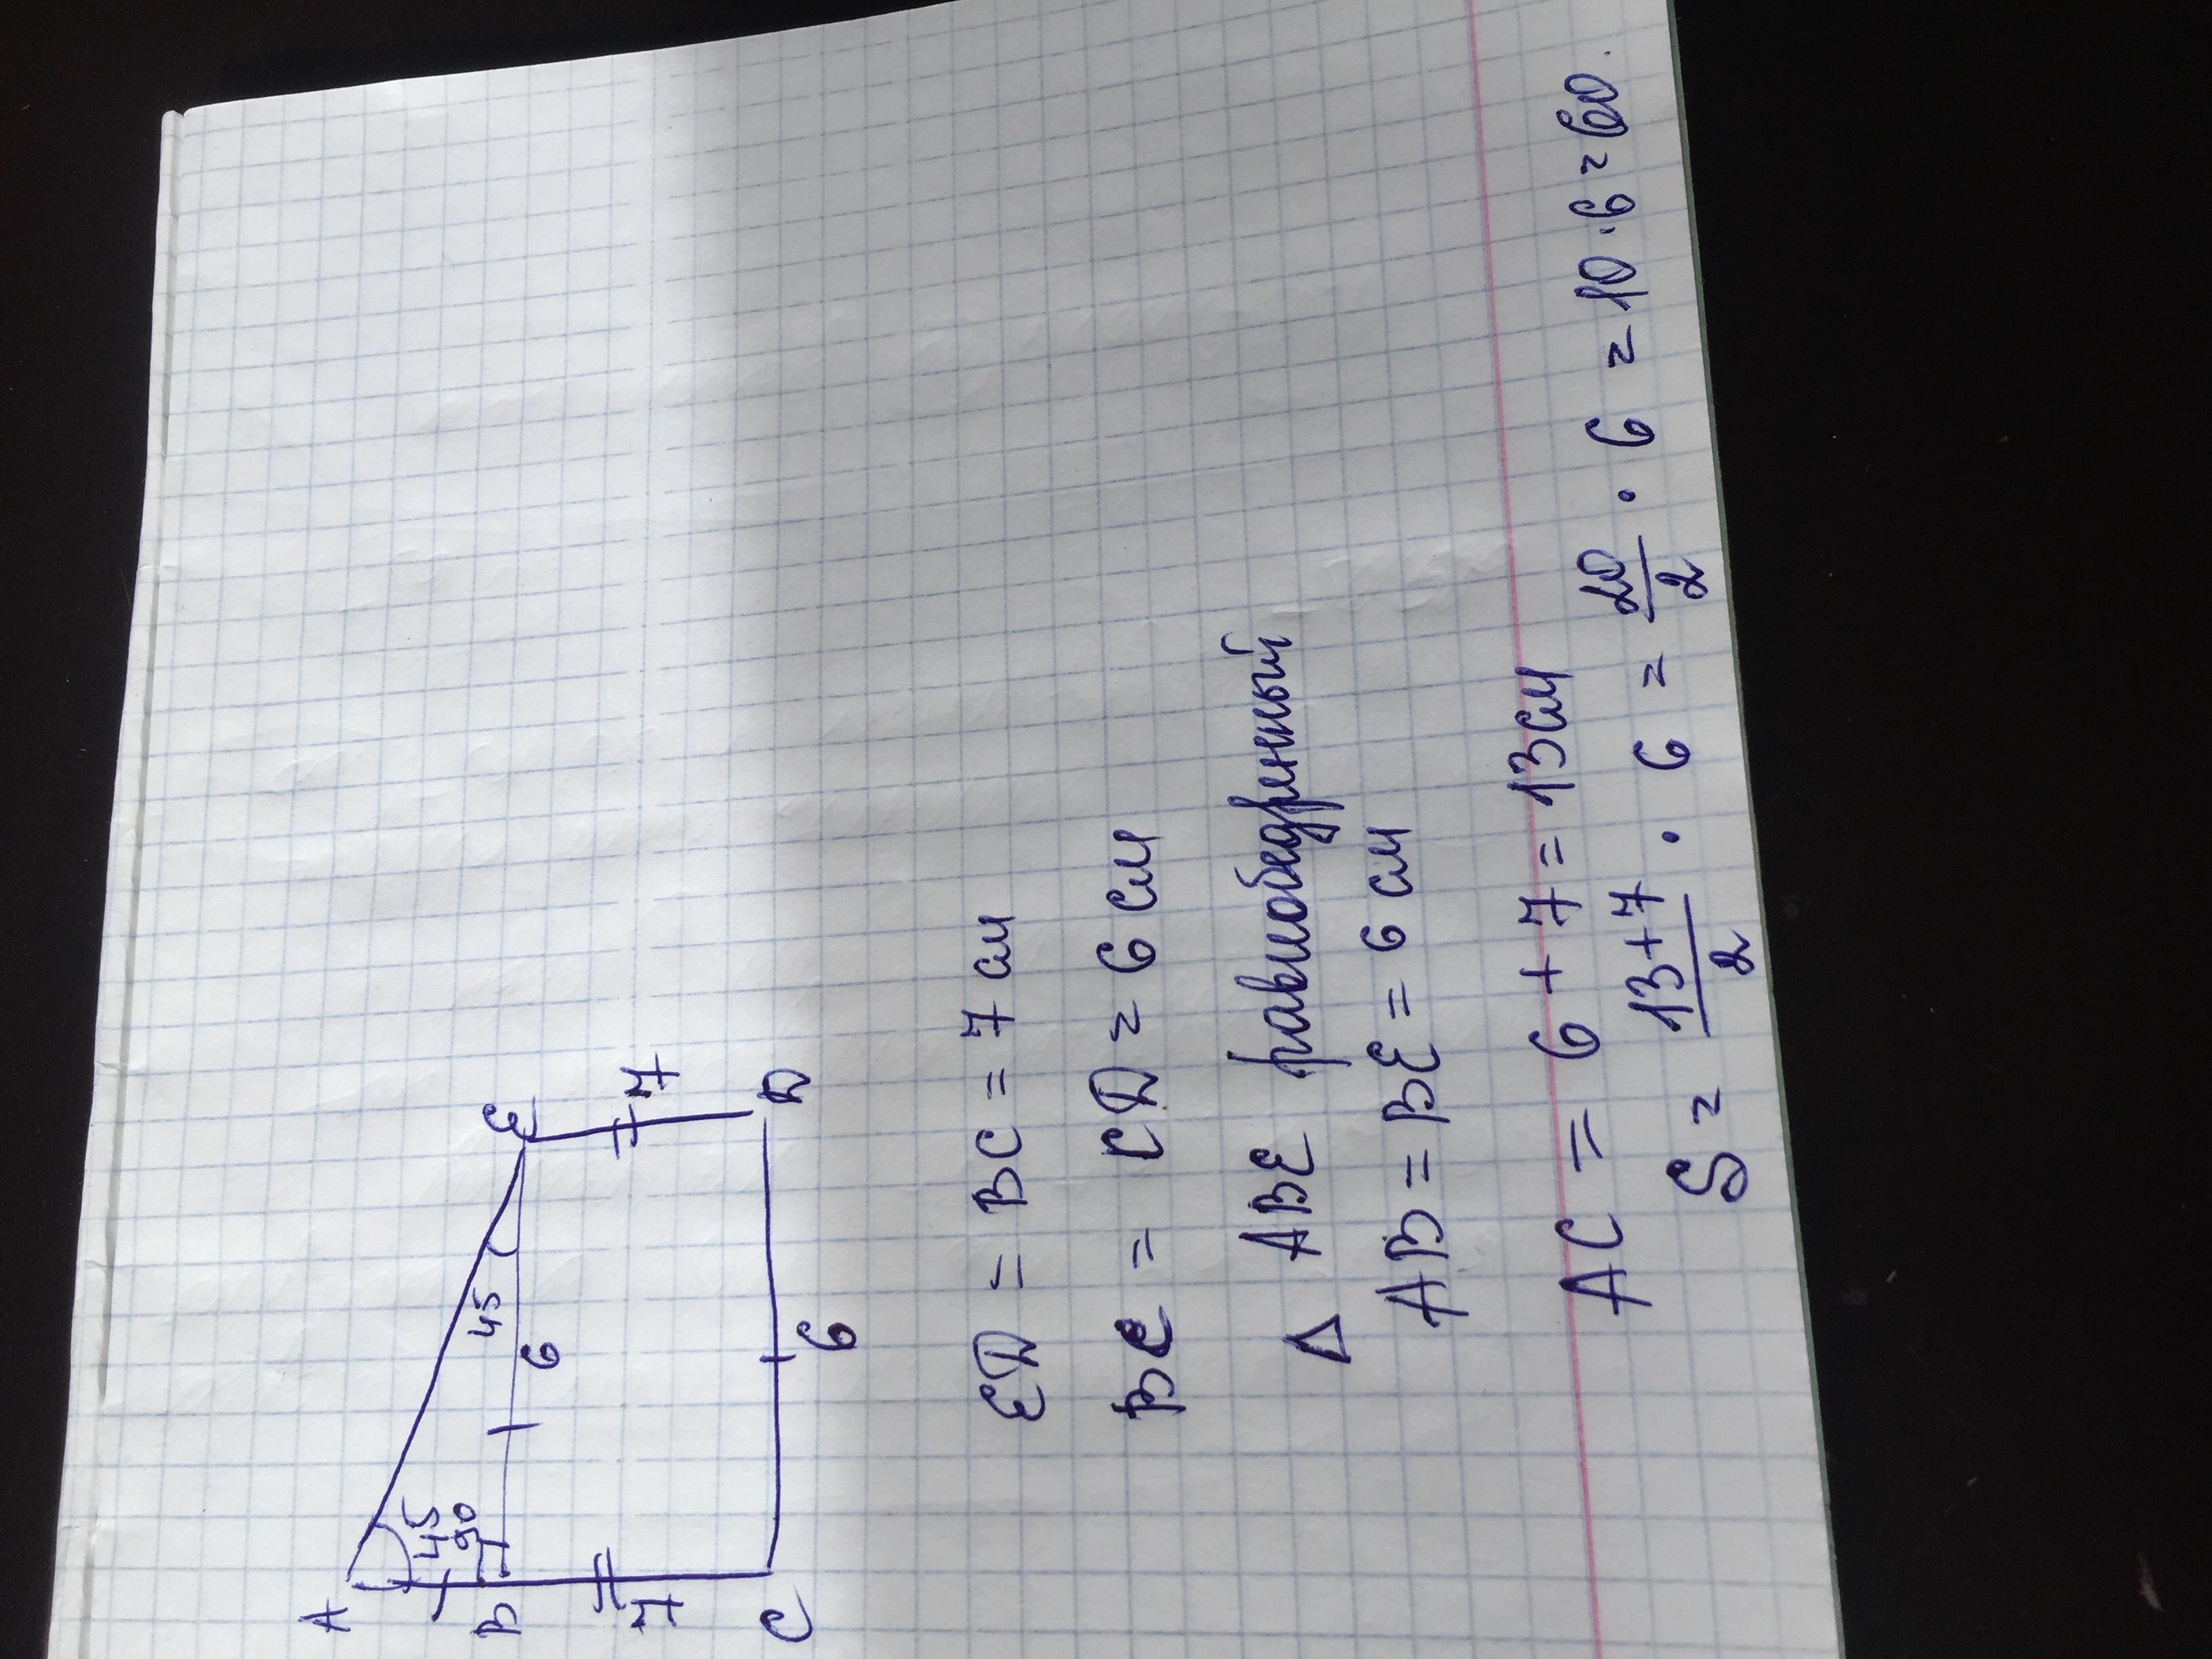 A
45
90
B
7
C
45
6
E
7
D
6
ED = BC = 7 см
BE = CD = 6 см
Δ ABE равнобедренный
AB = BE = 6 см
AC = 6 + 7 = 13 см
S = \frac{13+7}{2} · 6 = \frac{20}{2} · 6 = 10 · 6 = 60.